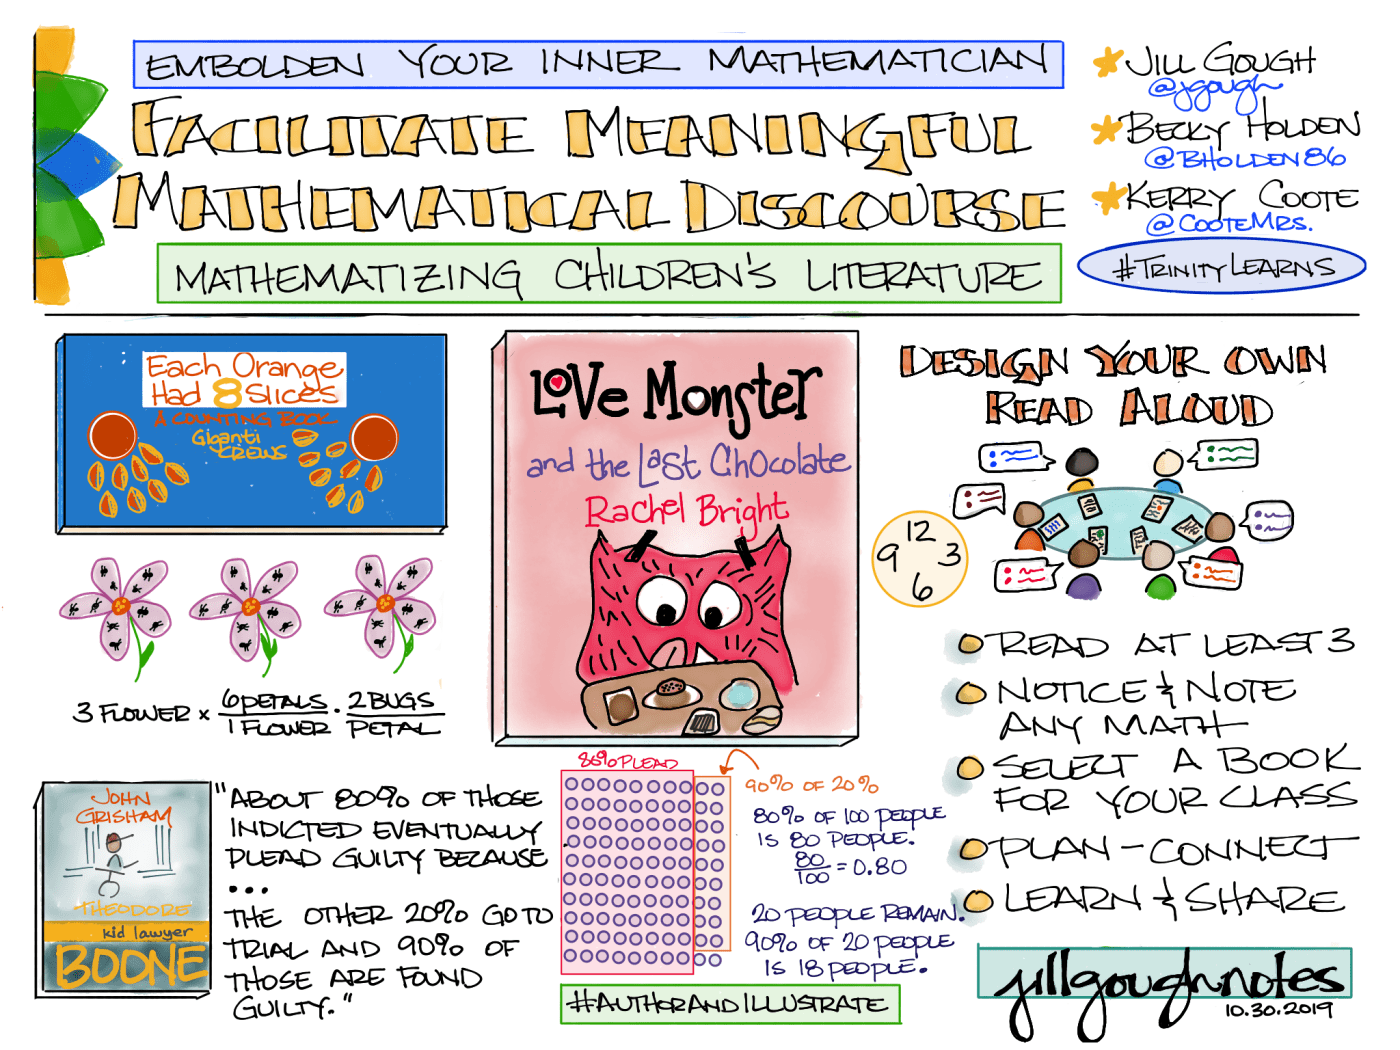 EMBOLDEN YOUR INNER MATHEMATICIAN
FACILITATE MEANINGFUL
MATHEMATICAL DISCOURSE
MATHEMATIZING CHILDREN'S LITERATURE
JILL GOUGH
@jgough
BECKY HOLDEN
@BHOLDEN86
KERRY COOTE
@COOTEMRS.
#TRINITYLEARNS
Each Orange
Had 8 Slices
A COUNTING BOOK
Giganti
CREWS
3 FLOWER × 6 PETALS / 1 FLOWER · 2 BUGS / PETAL
JOHN
GRISHAM
THEODORE
kid lawyer
BOONE
"ABOUT 80% OF THOSE
INDICTED EVENTUALLY
PLEAD GUILTY BECAUSE
...
THE OTHER 20% GO TO
TRIAL AND 90% OF
THOSE ARE FOUND
GUILTY."
LOVe Monster
and the Last ChOcolate
Rachel Bright
80% PLEAD
90% OF 20%
80% OF 100 PEOPLE
IS 80 PEOPLE.
80/100 = 0.80
20 PEOPLE REMAIN.
90% OF 20 PEOPLE
IS 18 PEOPLE.
#AUTHORANDILLUSTRATE
DESIGN YOUR OWN
READ ALOUD
12
9 3
6
READ AT LEAST 3
NOTICE & NOTE
ANY MATH
SELECT A BOOK
FOR YOUR CLASS
PLAN - CONNECT
LEARN & SHARE
jillgoughnotes
10.30.2019